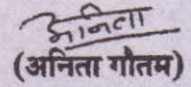 अनिता
(अनिता गौतम)